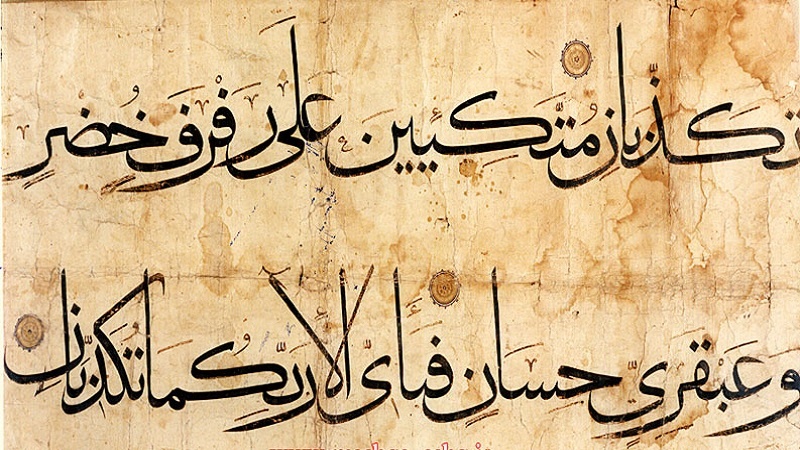 تكذبان مُتَّكِـِٔينَ عَلَى رَفْرَفٍ خُضْرٍ
وَعَبْقَرِيٍّ حِسَانٍ فَبِأَيِّ آلَاءِ رَبِّكُمَا تُكَذِّبَانِ